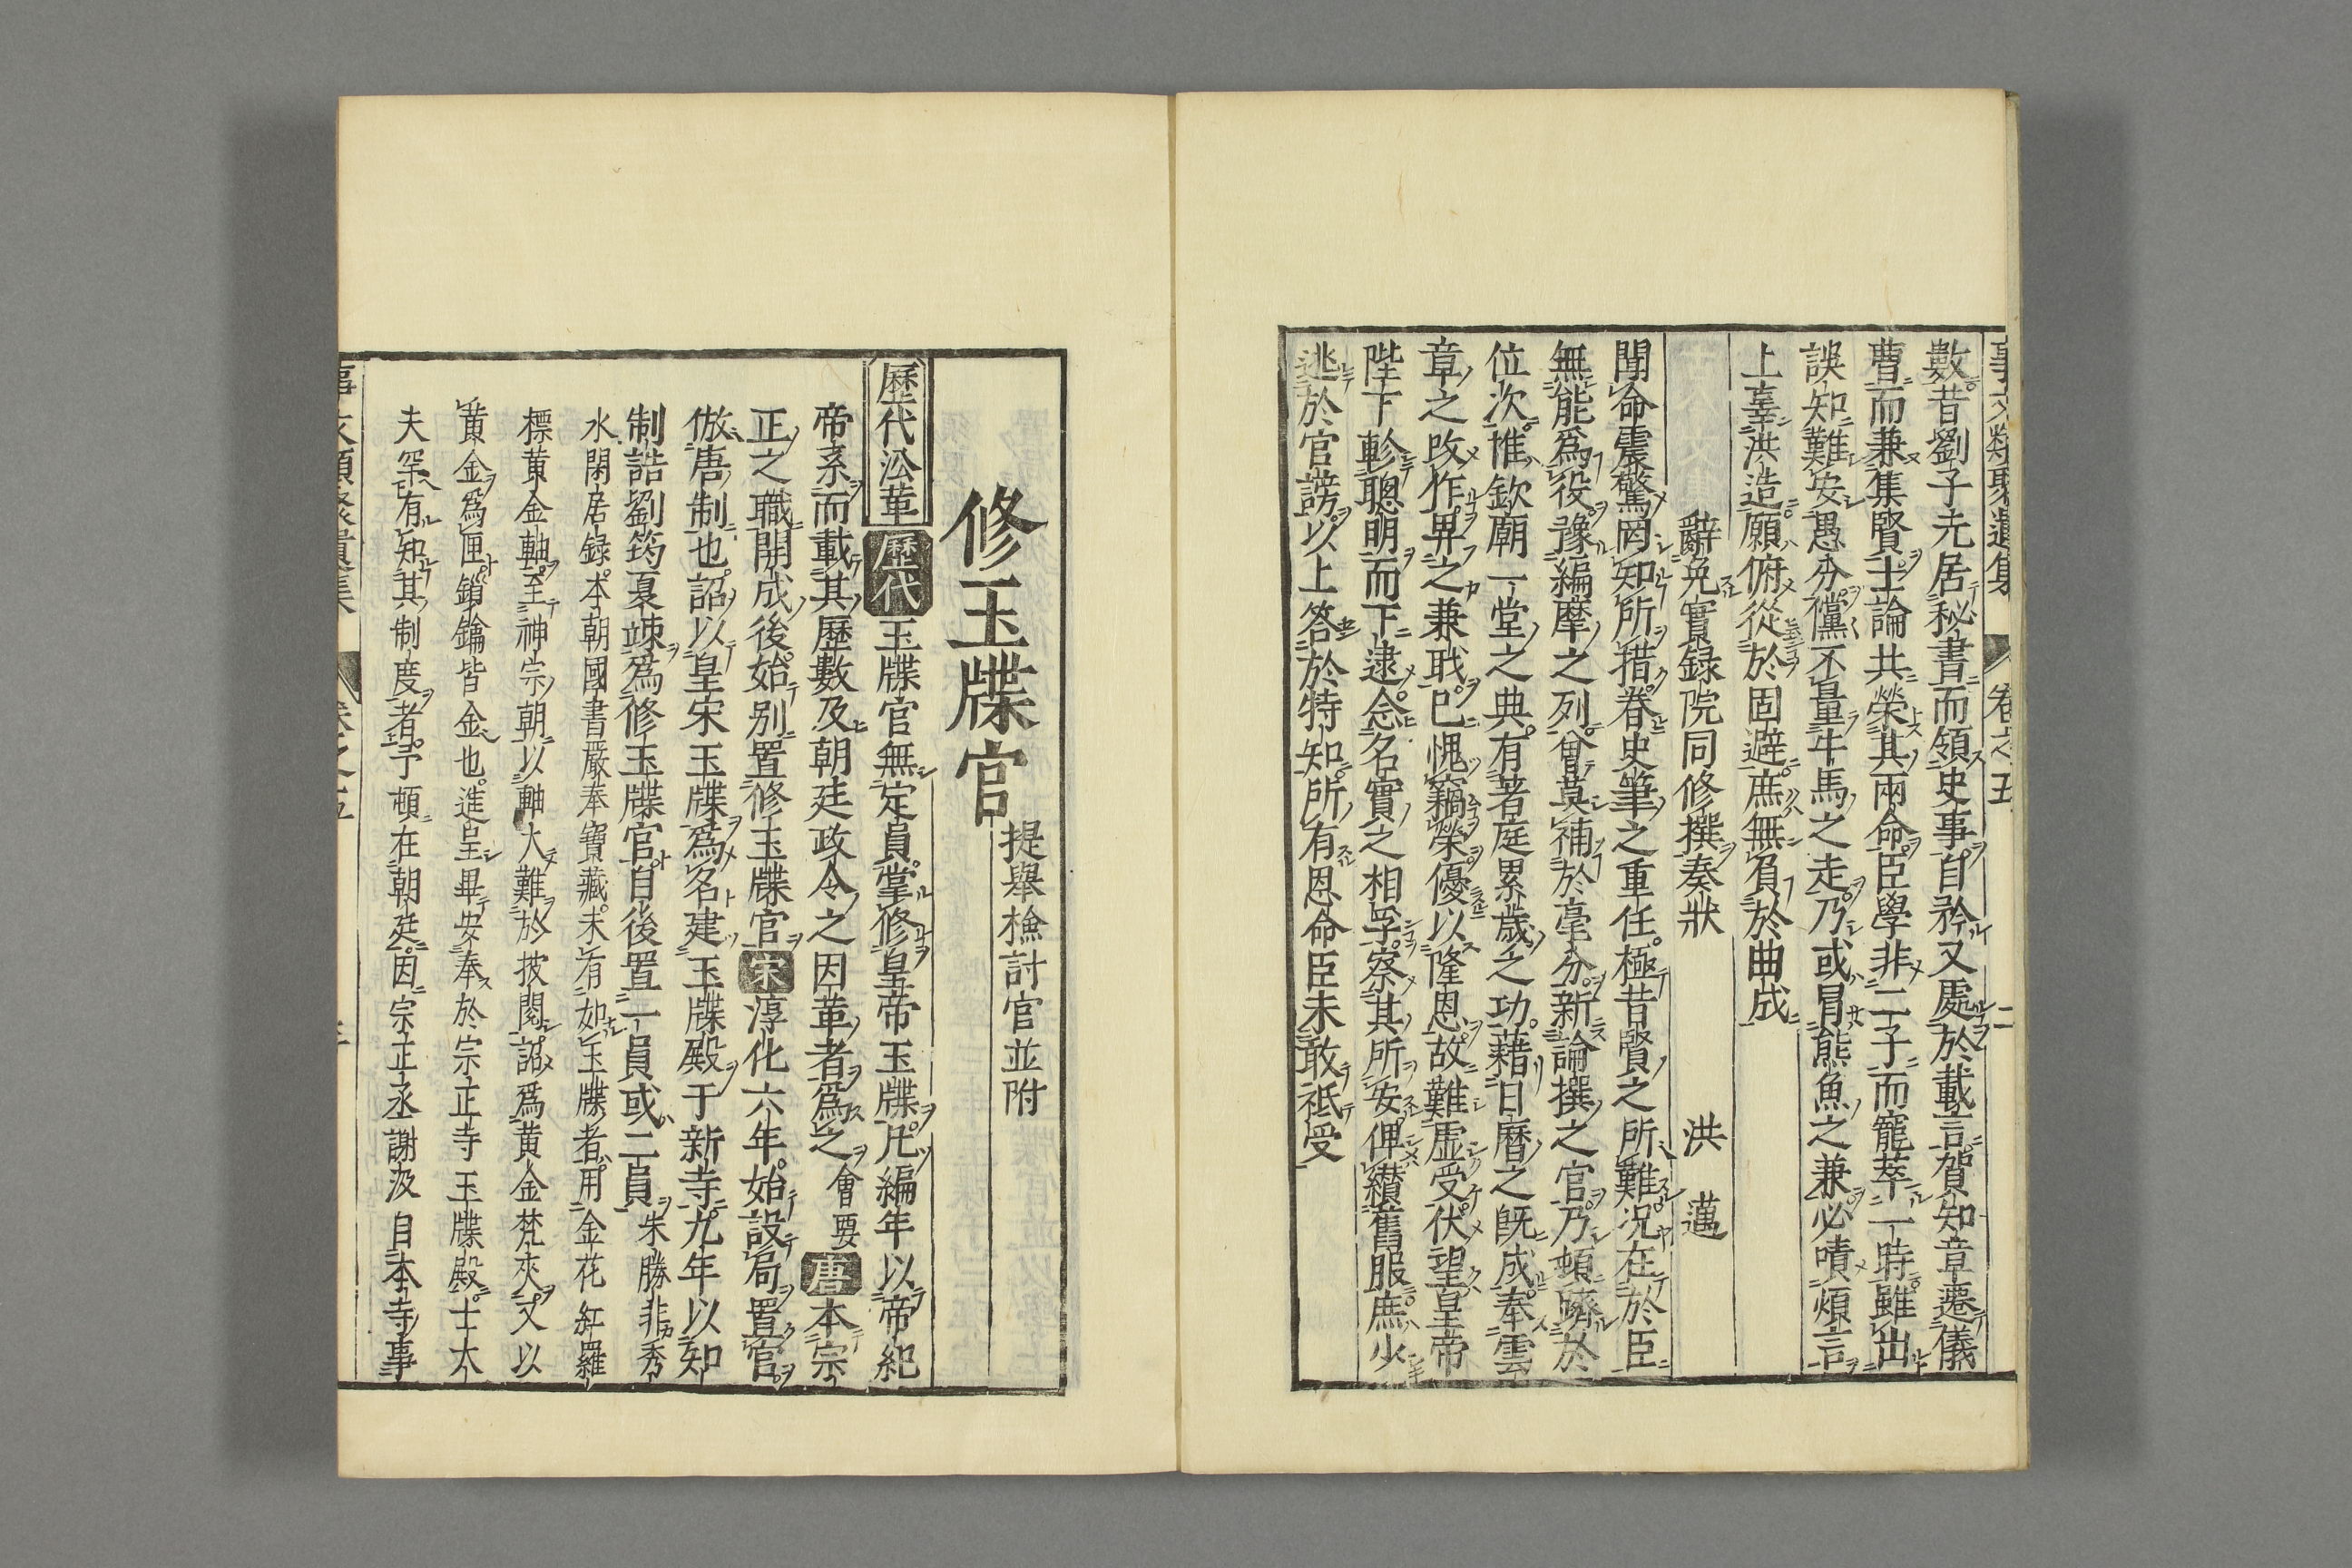 事文類聚遺集 卷之五 二
數昔劉子先居秘書而領史事自矜又處於載言賀知章遷儀
曹而兼集賢士論共榮其兩命臣學非二子而寵萃一時雖出
誤知難安愚分儻不量牛馬之走乃或冒熊魚之兼必嘖煩言
上辜洪造願俯從於固避庶無負於曲成
辭免實録院同修撰奏狀 洪邁
聞命震驚罔知所措眷史筆之重任極昔賢之所難況在於臣
無能爲役豫編摩之列曾莫補於毫分新論撰之官乃頓隮於
位次惟欽廟一堂之典有著庭累歲之功藉日曆之旣成奉雲
章之攺作畀之兼職已愧竊榮優以隆恩故難虚受伏望皇帝
陛下軫聰明而下逮念名實之相孚察其所安俾纉舊服庶少
逃於官謗以上答於特知所有恩命臣未敢祗受
修玉牒官 提舉檢討官並附
歷代沿革 歷代 玉牒官無定員掌修皇帝玉牒凡編年以帝紀
帝系而載其歷數及朝廷政令之因革者爲之會要 唐 本宗
正之職開成後始别置修玉牒官 宋 淳化六年始設局置官
倣唐制也詔以皇宋玉牒爲名建玉牒殿于新寺九年以知
制誥劉筠夏竦爲修玉牒官自後置一員或二員朱勝非秀
水閑居録本朝國書嚴奉寶藏未有如玉牒者用金花紅羅
標黄金軸至神宗朝以軸大難於披閱詔爲黄金梵夾又以
黄金爲匣鎖鑰皆金也進呈畢安奉於宗正寺玉牒殿士大
夫罕有知其制度者予頓在朝廷因宗正丞謝汲自本寺事
事文類聚遺集 卷之五